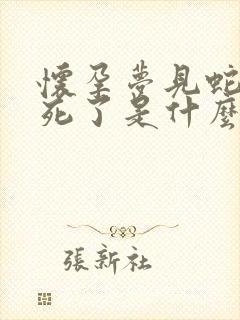 懷孕夢見蛇
死了是什麼
張新社